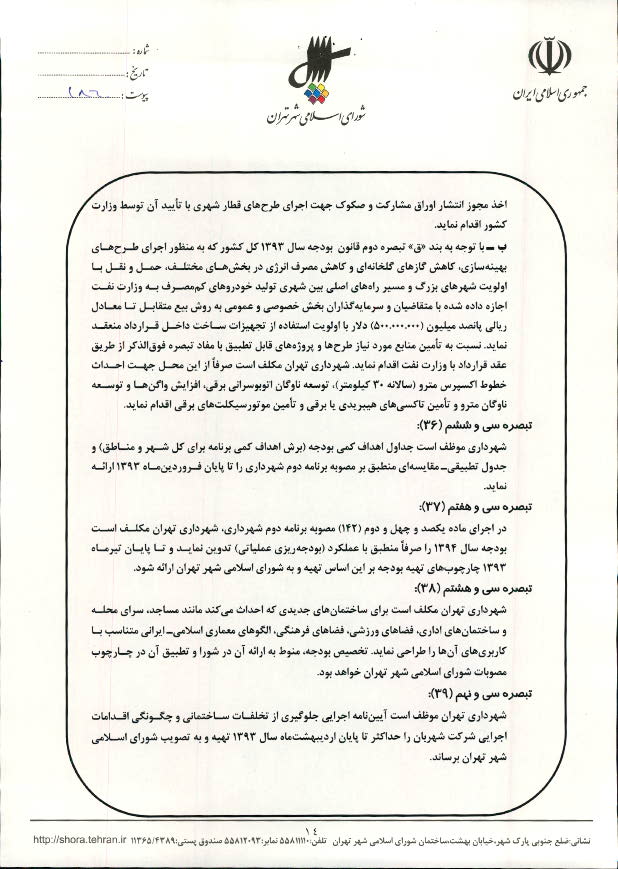 جمهوری اسلامی ایران
شورای اسلامی شهر تهران
شماره :
تاریخ :
پیوست :
اخذ مجوز انتشار اوراق مشارکت و صکوک جهت اجرای طرح‌های قطار شهری با تأیید آن توسط وزارت
کشور اقدام نماید.
ب ــ با توجه به بند «ق» تبصره دوم قانون بودجه سال ۱۳۹۳ کل کشور که به منظور اجرای طرح‌های
بهینه‌سازی، کاهش گازهای گلخانه‌ای و کاهش مصرف انرژی در بخش‌های مختلف، حمل و نقل با
اولویت شهرهای بزرگ و مسیر راه‌های اصلی بین شهری تولید خودروهای کم‌مصرف به وزارت نفت
اجازه داده شده با متقاضیان و سرمایه‌گذاران بخش خصوصی و عمومی به روش بیع متقابل تا معادل
ریالی پانصد میلیون (۵۰۰.۰۰۰.۰۰۰) دلار با اولویت استفاده از تجهیزات ساخت داخل قرارداد منعقد
نماید. نسبت به تأمین منابع مورد نیاز طرح‌ها و پروژه‌های قابل تطبیق با مفاد تبصره فوق‌الذکر از طریق
عقد قرارداد با وزارت نفت اقدام نماید. شهرداری تهران مکلف است صرفاً از این محل جهت احداث
خطوط اکسپرس مترو (سالانه ۳۰ کیلومتر)، توسعه ناوگان اتوبوسرانی برقی، افزایش واگن‌ها و توسعه
ناوگان مترو و تأمین تاکسی‌های هیبریدی یا برقی و تأمین موتورسیکلت‌های برقی اقدام نماید.
تبصره سی و ششم (۳۶):
شهرداری موظف است جداول اهداف کمی بودجه (برش اهداف کمی برنامه برای کل شهر و مناطق) و
جدول تطبیقی‌ــ مقایسه‌ای منطبق بر مصوبه برنامه دوم شهرداری را تا پایان فروردین‌ماه ۱۳۹۳ ارائه
نماید.
تبصره سی و هفتم (۳۷):
در اجرای ماده یکصد و چهل و دوم (۱۴۲) مصوبه برنامه دوم شهرداری، شهرداری تهران مکلف است
بودجه سال ۱۳۹۴ را صرفاً منطبق با عملکرد (بودجه‌ریزی عملیاتی) تدوین نماید و تا پایان تیرماه
۱۳۹۳ چارچوب‌های تهیه بودجه بر این اساس تهیه و به شورای اسلامی شهر تهران ارائه شود.
تبصره سی و هشتم (۳۸):
شهرداری تهران مکلف است برای ساختمان‌های جدیدی که احداث می‌کند مانند مساجد، سرای محله
و ساختمان‌های اداری، فضاهای ورزشی، فضاهای فرهنگی، الگوهای معماری اسلامی‌ــ ایرانی متناسب با
کاربری‌های آن‌ها را طراحی نماید. تخصیص بودجه، منوط به ارائه آن در شورا و تطبیق آن در چارچوب
مصوبات شورای اسلامی شهر تهران خواهد بود.
تبصره سی و نهم (۳۹):
شهرداری تهران موظف است آیین‌نامه اجرایی جلوگیری از تخلفات ساختمانی و چگونگی اقدامات
اجرایی شرکت شهربان را حداکثر تا پایان اردیبهشت‌ماه سال ۱۳۹۳ تهیه و به تصویب شورای اسلامی
شهر تهران برساند.
۱٤
نشانی:ضلع جنوبی پارک شهر،خیابان بهشت،ساختمان شورای اسلامی شهر تهران تلفن:۵۵۸۱۱۱۱۰ نمابر:۵۵۸۱۲۰۹۳ صندوق پستی:۱۱۳۶۵/۴۳۸۹ http://shora.tehran.ir